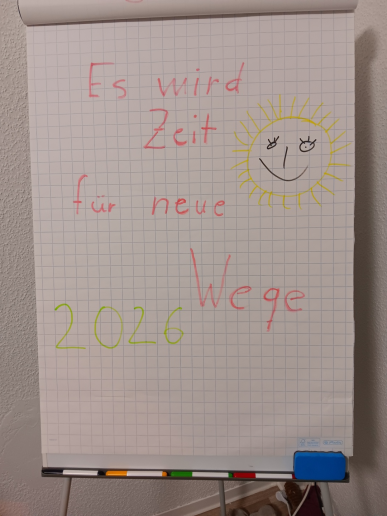 Es wird
Zeit
für neue
Wege
2026